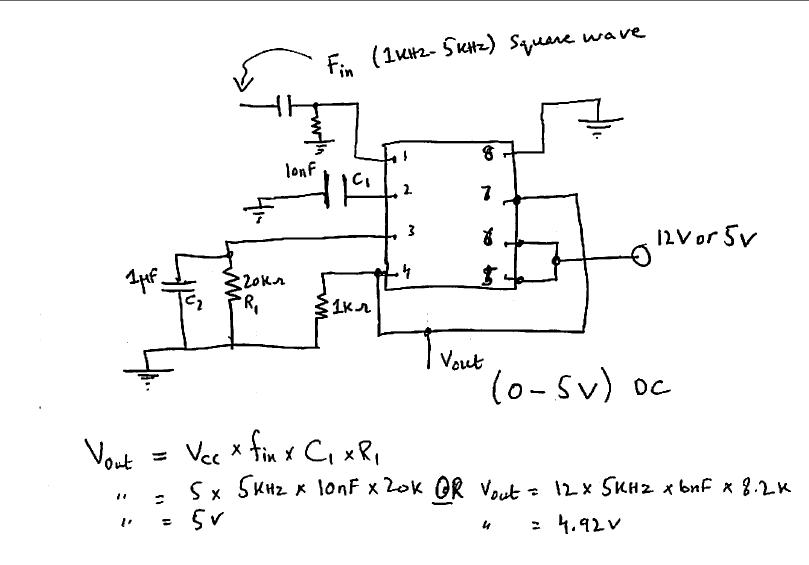 Fin (1KHz-5KHz) Square wave
10nF
C1
1
2
3
4
8
7
6
5
12V or 5V
1μF
C2
20KΩ
R1
1KΩ
Vout
(0-5V) DC
Vout = Vcc x fin x C1 x R1
" = 5 x 5KHz x 10nF x 20K OR Vout = 12 x 5KHz x 6nF x 8.2K
" = 5V " = 4.92V